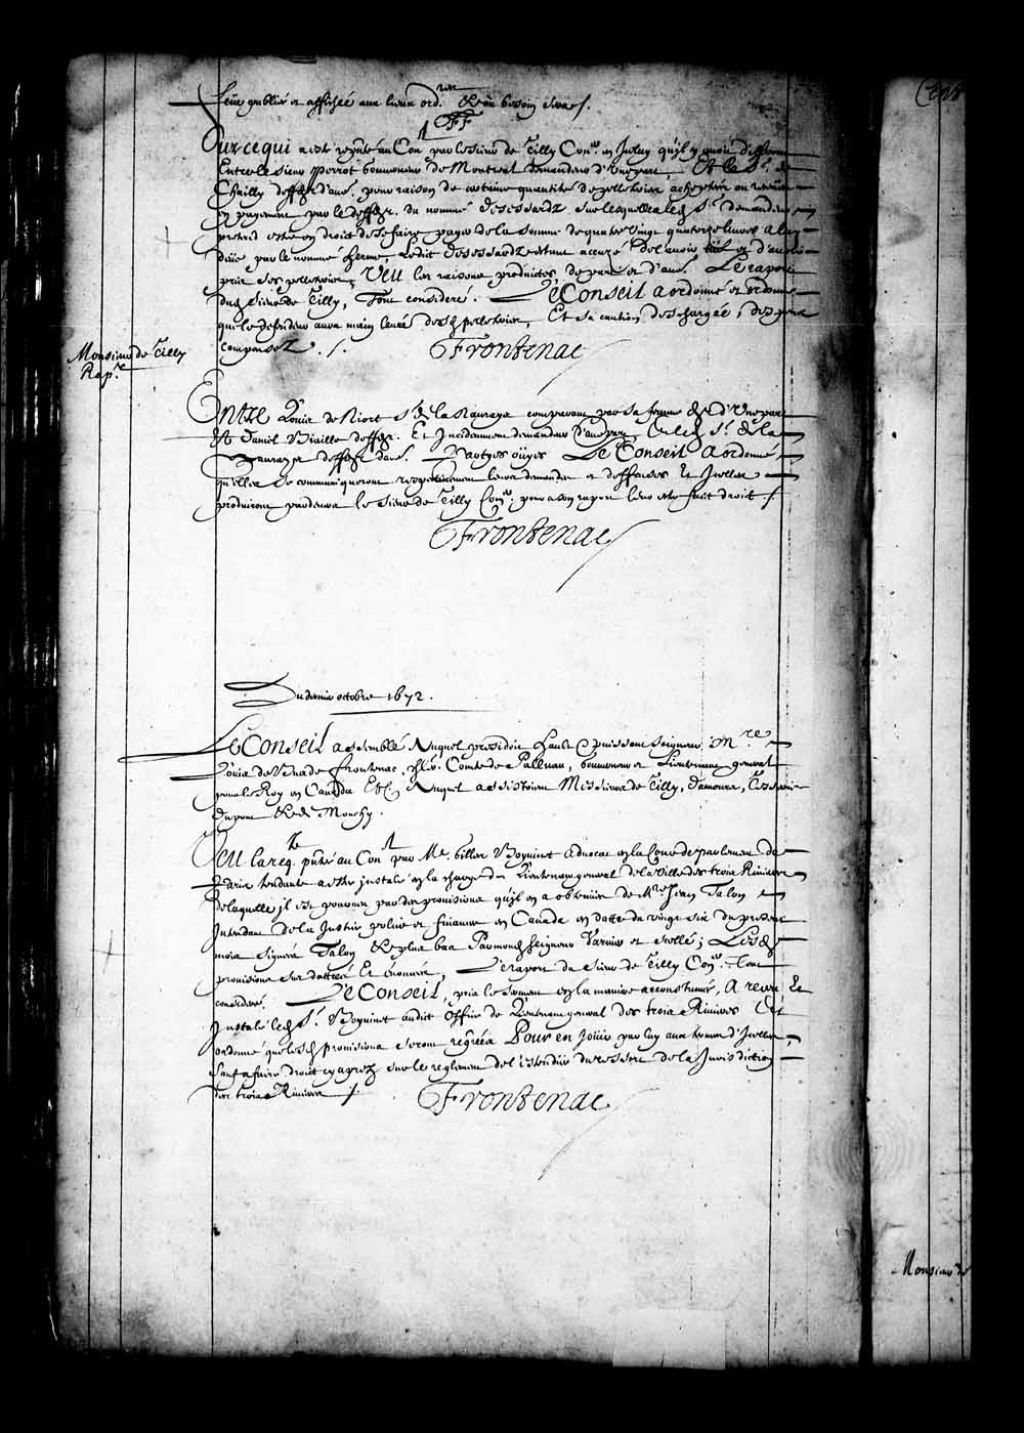 Leüe publiée et affichée aux lieux ord.res & où besoin sera ./.
FF
Sur ce qui a esté repñté au Con.l par le sieur de Tilly Con.er en Iceluy qu'il y avoit differen
Entre le sieur perrot Gouverneur de Montreal demandeur d'Une part, Et le S.r de
Chailly deffeñr d'autre. pour raison de certaine quantité de pelleterie acheptées ou receües
en payement par le deffeñr. du nommé desessardz sur lesquelles led. S.r demandeur
pretend estre en droit de se faire payer de la somme de quatre vingt quatorze livres a luy
deüe par le nommé ledit desessardz estant accuzé de l'avoir et d'avoir
pris ses pelleteries, Veu les raisons produittes de part et d'autre. Le raport
dud. sieur de Tilly, Tout consideré. Le Conseil a ordonné et ordonne
que le defendeur aura main levée desd. pelleteries, Et sa caution deschargée, despens
compensez ./.
Monsieur de Tilly
Rap.r
Frontenac
Entre Louis de Niort S.r de la Nauraye comparant par sa femme d'Une part
Et Daniel Biaille deffeñr. Et Incidemment demandeur d'autre part, Et led. S.r de la
Nauraye deffeñr d'autre. Partyes oüyes Le Conseil a ordonné
qu'elles se communiqueront respectivement leurs demandes et deffenses Et Icelles
produiront pardevers le sieur de Tilly Con.er pour a son raport leur estre fait droit ./.
Frontenac
Du dernier octobre 1672.
Le Conseil assemblé Auquel presidoit hault & puissant seigneur M.re
Louis de Buade frontenac, chlr. Comte de Palluau, Gouverneur et Lieutenant general
pour le Roy en Canada Et Auquel assistoient Messieurs de Tilly, Damours, Tesserie
Dupont & de Mouchy.
Veu la req.te pñtée au Con.l par M.e Gilles Boyvinet Advocat en la Cour de parlement de
Paris tendante a estre installé en la charge de Lieutenant general de la ville des trois Rivieres
de laquelle il est pourveu par des provisions qu'il en a obtenües de M.re Jean Talon
Intendant de la Justice police et finances en Canada en datte du vingt six du present
mois signées Talon & plus bas Par mond. seigneur Varnier et scellé; Lesd.
provisions sus dattées Et enoncées, Le raport du sieur de Tilly Con.er Tout
consideré. Le Conseil, pris le serment en la maniere accoustumée, A receu Et
Installé led. S.r Boyvinet audit Office de Lieutenant general des trois Rivieres Et
ordonné que lesd. provisions seront regrées Pour en Joüir par luy aux termes d'Icelles,
Sauf a faire droit cy aprez sur le reglement de l'estendüe du ressort de la Jurisdiction
des trois Rivieres ./.
Frontenac
Monsieur de